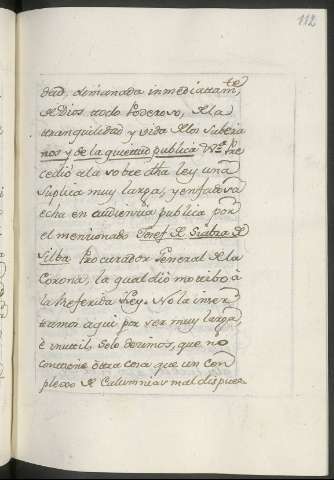 112
dad, demanada inmediattamte
de Dios ttodo Poderoso, de la
ttranquilidad y vida de los sobera
nos y de la quiettud publica Vra. Pre
cedió a la sobre dha ley una
suplica muy larga, y enfatica
echa en audiencia publica por
el menzionado Josef de Siabra de
Silba Procurador General de la
Corona, la qual dió mottibo à
la Referida Ley. No la inser
ttamos aqui por ser muy larga,
è inuttil. Solo dezimos, que no
conttiene òttra cosa que un com
plexo de Calumnias mal dispues